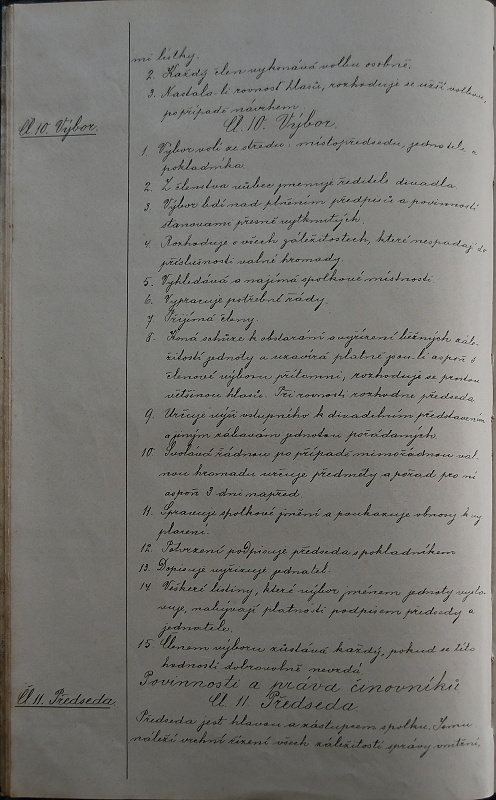 mi lístky.
2. Každý člen vykonává volbu osobně.
3. Nastala-li rovnost hlasů, rozhoduje se užší volbou,
po případě návrhem
Čl. 10. Výbor.
Čl. 10. Výbor.
1. Výbor volí ze středu: místopředsedu, jednatele a
pokladníka
2. Z členstva vůbec jmenuje ředitele divadla.
3. Výbor bdí nad plněním předpisů a povinností
stanovami přesně vytknutých
4. Rozhoduje o všech záležitostech, které nespadají do
příslušnosti valné hromady.
5. Vyhledává a najímá spolkové místnosti
6. Vypracuje potřebné řády.
7. Přijímá členy.
8. Koná schůze k obstarání a vyřízení běžných zále-
žitostí jednoty a uzavírá platně jsou-li aspoň
členové výboru přítomni, rozhoduje se prostou
většinou hlasů. Při rovnosti rozhodne předseda
9. Určuje výši vstupného k divadelním představením
a jiným zábavám jednotou pořádaných
10. Svolává řádnou po případě mimořádnou val-
nou hromadu určuje předměty a pořad pro ni
aspoň 3 dni napřed.
11. Spravuje spolkové jmění a poukazuje obnosy k vy
placení.
12. Potvrzení podpisuje předseda s pokladníkem
13. Dopisuje vyřizuje jednatel.
14. Veškeré listiny, které výbor jménem jednoty vysta-
vuje, nabývají platnosti podpisem předsedy a
jednatele.
15. Členem výboru zůstává každý, pokud se této
hodnosti dobrovolně nevzdá
Povinnosti a práva činovníků
Čl. 11. Předseda
Čl. 11. Předseda.
Předseda jest hlavou a zástupcem spolku. Jemu
náleží vrchní řízení všech záležitostí správy vnitřní,